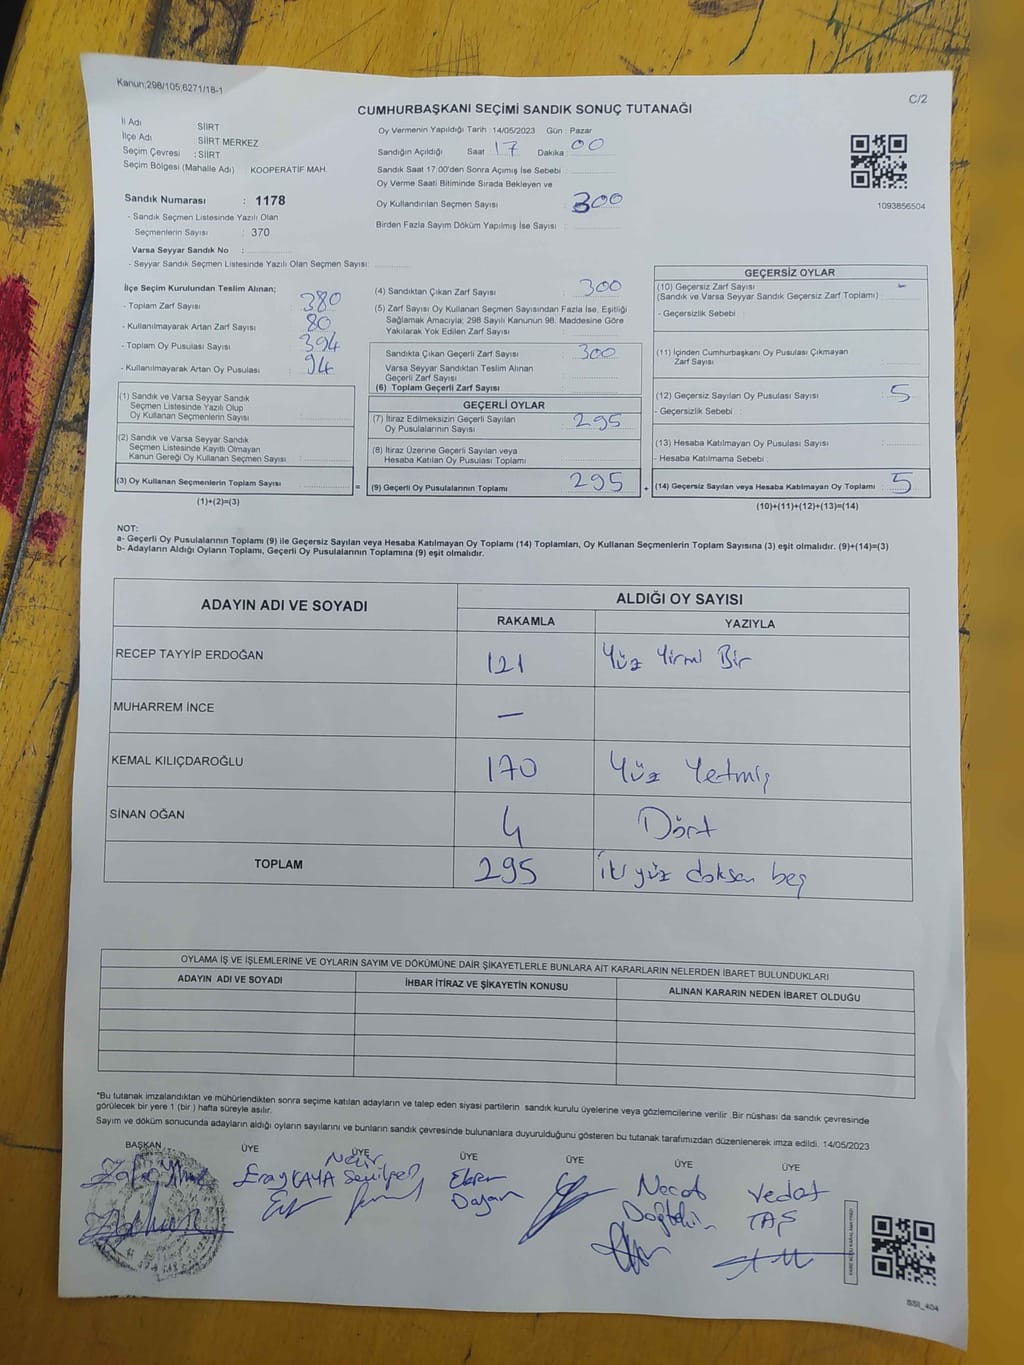 Kanun;298/105,6271/18-1
C/2
CUMHURBAŞKANI SEÇİMİ SANDIK SONUÇ TUTANAĞI
İl Adı SİİRT
İlçe Adı SİİRT MERKEZ
Seçim Çevresi : SİİRT
Seçim Bölgesi (Mahalle Adı) KOOPERATİF MAH.
Sandık Numarası : 1178
- Sandık Seçmen Listesinde Yazılı Olan
Seçmenlerin Sayısı : 370
Varsa Seyyar Sandık No :
- Seyyar Sandık Seçmen Listesinde Yazılı Olan Seçmen Sayısı:
Oy Vermenin Yapıldığı Tarih : 14/05/2023 Gün : Pazar
Sandığın Açıldığı Saat : 17 Dakika : 00
Sandık Saat 17:00'den Sonra Açımış İse Sebebi :
Oy Verme Saati Bitiminde Sırada Bekleyen ve
Oy Kullandırılan Seçmen Sayısı : 300
Birden Fazla Sayım Döküm Yapılmış İse Sayısı :
1093856504
İlçe Seçim Kurulundan Teslim Alınan;
- Toplam Zarf Sayısı : 380
- Kullanılmayarak Artan Zarf Sayısı : 80
- Toplam Oy Pusulası Sayısı : 394
- Kullanılmayarak Artan Oy Pusulası : 94
(1) Sandık ve Varsa Seyyar Sandık
Seçmen Listesinde Yazılı Olup
Oy Kullanan Seçmenlerin Sayısı :
(2) Sandık ve Varsa Seyyar Sandık
Seçmen Listesinde Kayıtlı Olmayan
Kanun Gereği Oy Kullanan Seçmen Sayısı :
(3) Oy Kullanan Seçmenlerin Toplam Sayısı : =
(1)+(2)=(3)
(4) Sandıktan Çıkan Zarf Sayısı : 300
(5) Zarf Sayısı Oy Kullanan Seçmen Sayısından Fazla İse, Eşitliği
Sağlamak Amacıyla; 298 Sayılı Kanunun 98. Maddesine Göre
Yakılarak Yok Edilen Zarf Sayısı :
Sandıkta Çıkan Geçerli Zarf Sayısı : 300
Varsa Seyyar Sandıktan Teslim Alınan
Geçerli Zarf Sayısı :
(6) Toplam Geçerli Zarf Sayısı :
GEÇERLİ OYLAR
(7) İtiraz Edilmeksizin Geçerli Sayılan
Oy Pusulalarının Sayısı : 295
(8) İtiraz Üzerine Geçerli Sayılan veya
Hesaba Katılan Oy Pusulası Toplamı :
(9) Geçerli Oy Pusulalarının Toplamı : 295 +
GEÇERSİZ OYLAR
(10) Geçersiz Zarf Sayısı -
(Sandık ve Varsa Seyyar Sandık Geçersiz Zarf Toplamı) :
- Geçersizlik Sebebi :
(11) İçinden Cumhurbaşkanı Oy Pusulası Çıkmayan
Zarf Sayısı :
(12) Geçersiz Sayılan Oy Pusulası Sayısı : 5
- Geçersizlik Sebebi :
(13) Hesaba Katılmayan Oy Pusulası Sayısı :
- Hesaba Katılmama Sebebi :
(14) Geçersiz Sayılan veya Hesaba Katılmayan Oy Toplamı : 5
(10)+(11)+(12)+(13)=(14)
NOT:
a- Geçerli Oy Pusulalarının Toplamı (9) ile Geçersiz Sayılan veya Hesaba Katılmayan Oy Toplamı (14) Toplamları, Oy Kullanan Seçmenlerin Toplam Sayısına (3) eşit olmalıdır. (9)+(14)=(3)
b- Adayların Aldığı Oyların Toplamı, Geçerli Oy Pusulalarının Toplamına (9) eşit olmalıdır.
ADAYIN ADI VE SOYADI ALDIĞI OY SAYISI
RAKAMLA YAZIYLA
RECEP TAYYİP ERDOĞAN 121 Yüz Yirmi Bir
MUHARREM İNCE —
KEMAL KILIÇDAROĞLU 170 Yüz Yetmiş
SİNAN OĞAN 4 Dört
TOPLAM 295 İki yüz doksan beş
OYLAMA İŞ VE İŞLEMLERİNE VE OYLARIN SAYIM VE DÖKÜMÜNE DAİR ŞİKAYETLERLE BUNLARA AİT KARARLARIN NELERDEN İBARET BULUNDUKLARI
ADAYIN ADI VE SOYADI İHBAR İTİRAZ VE ŞİKAYETİN KONUSU ALINAN KARARIN NEDEN İBARET OLDUĞU
*Bu tutanak imzalandıktan ve mühürlendikten sonra seçime katılan adayların ve talep eden siyasi partilerin sandık kurulu üyelerine veya gözlemcilerine verilir .Bir nüshası da sandık çevresinde
görülecek bir yere 1 (bir ) hafta süreyle asılır.
Sayım ve döküm sonucunda adayların aldığı oyların sayılarını ve bunların sandık çevresinde bulunanlara duyurulduğunu gösteren bu tutanak tarafımızdan düzenlenerek imza edildi. 14/05/2023
BAŞKAN ÜYE ÜYE ÜYE ÜYE ÜYE ÜYE
Eray KAYA
Ekrem
Doğan
Necat
Vedat
TAŞ
SSI_404